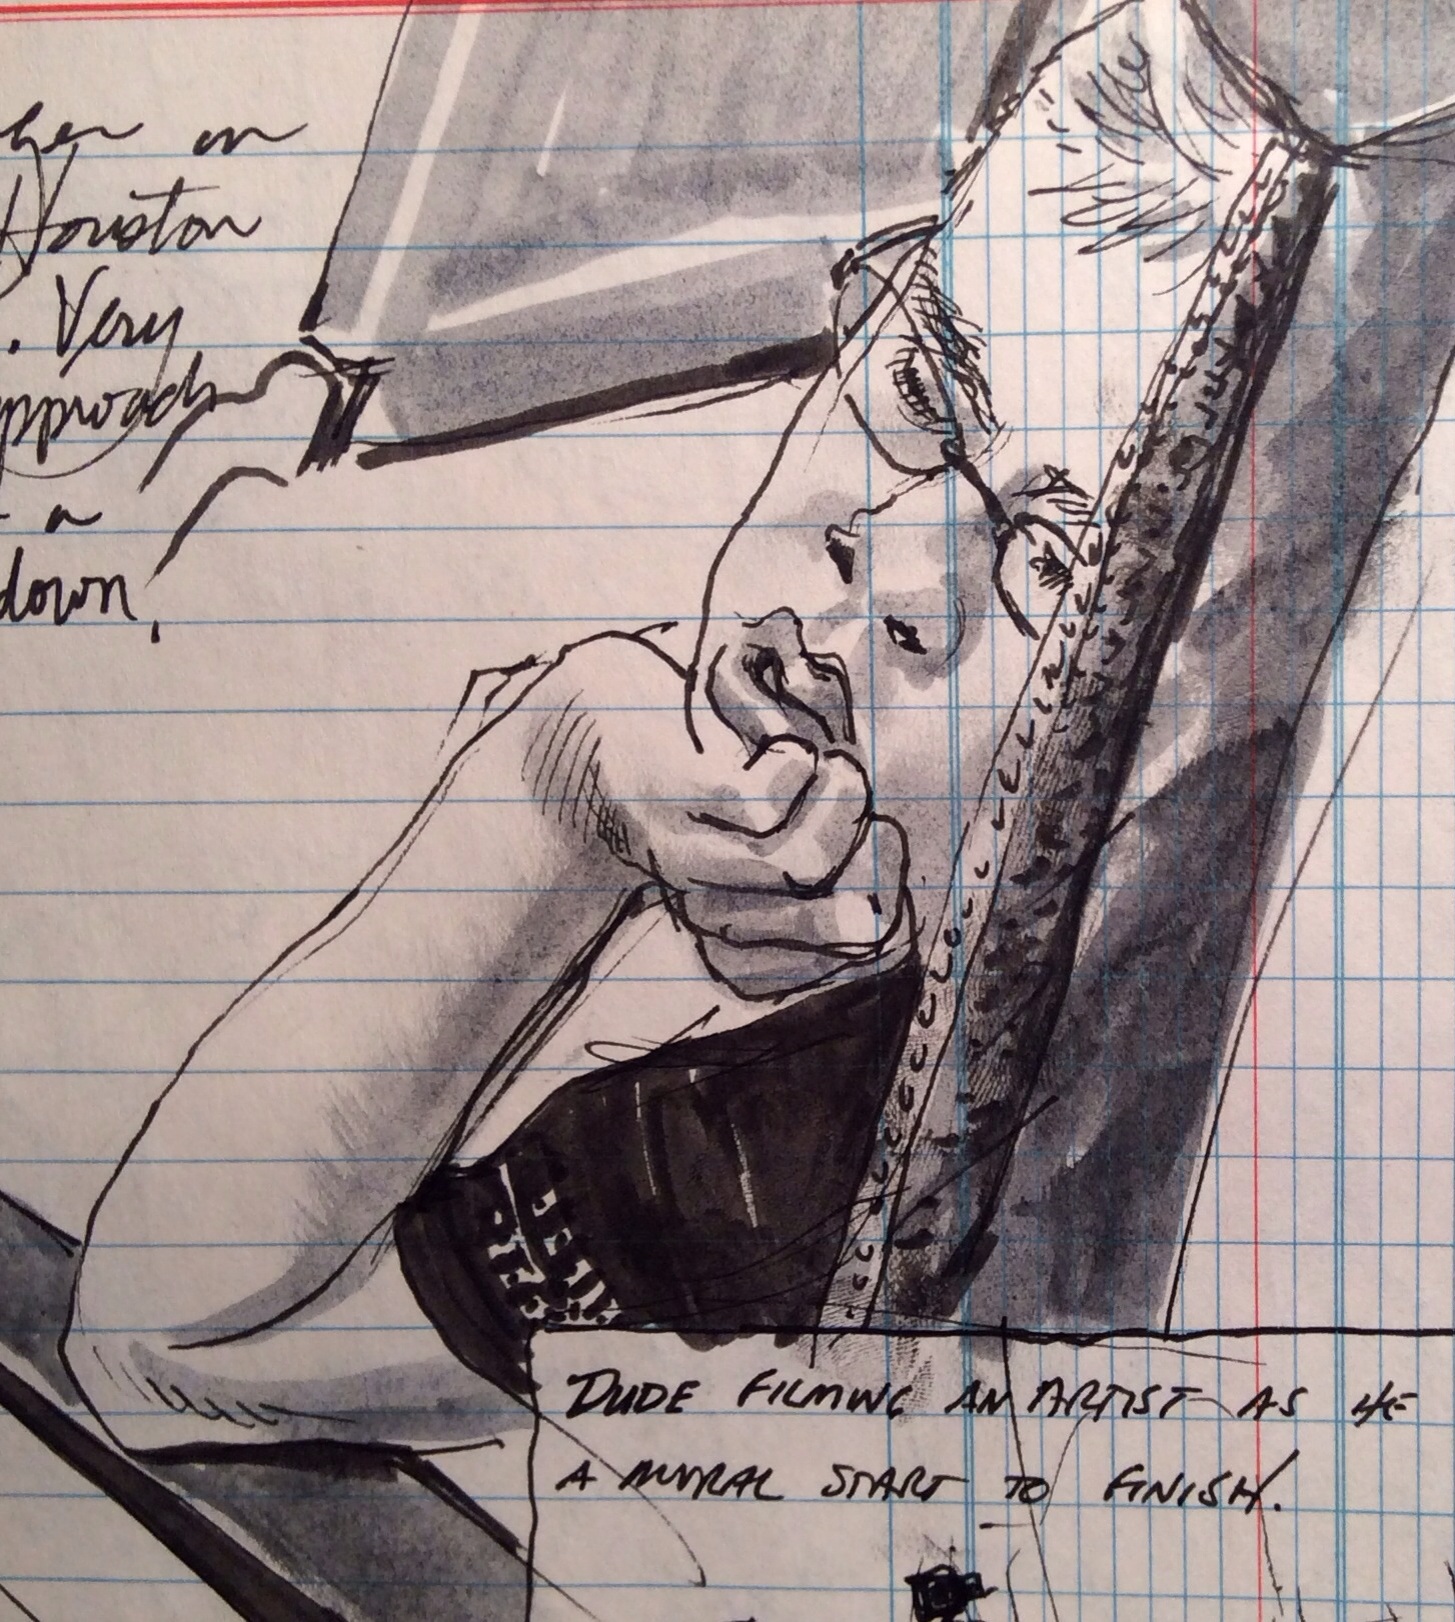 on
Houston
. Very
pproach
- a
down.
DUDE FILMING AN ARTIST AS HE
A MURAL START TO FINISH.